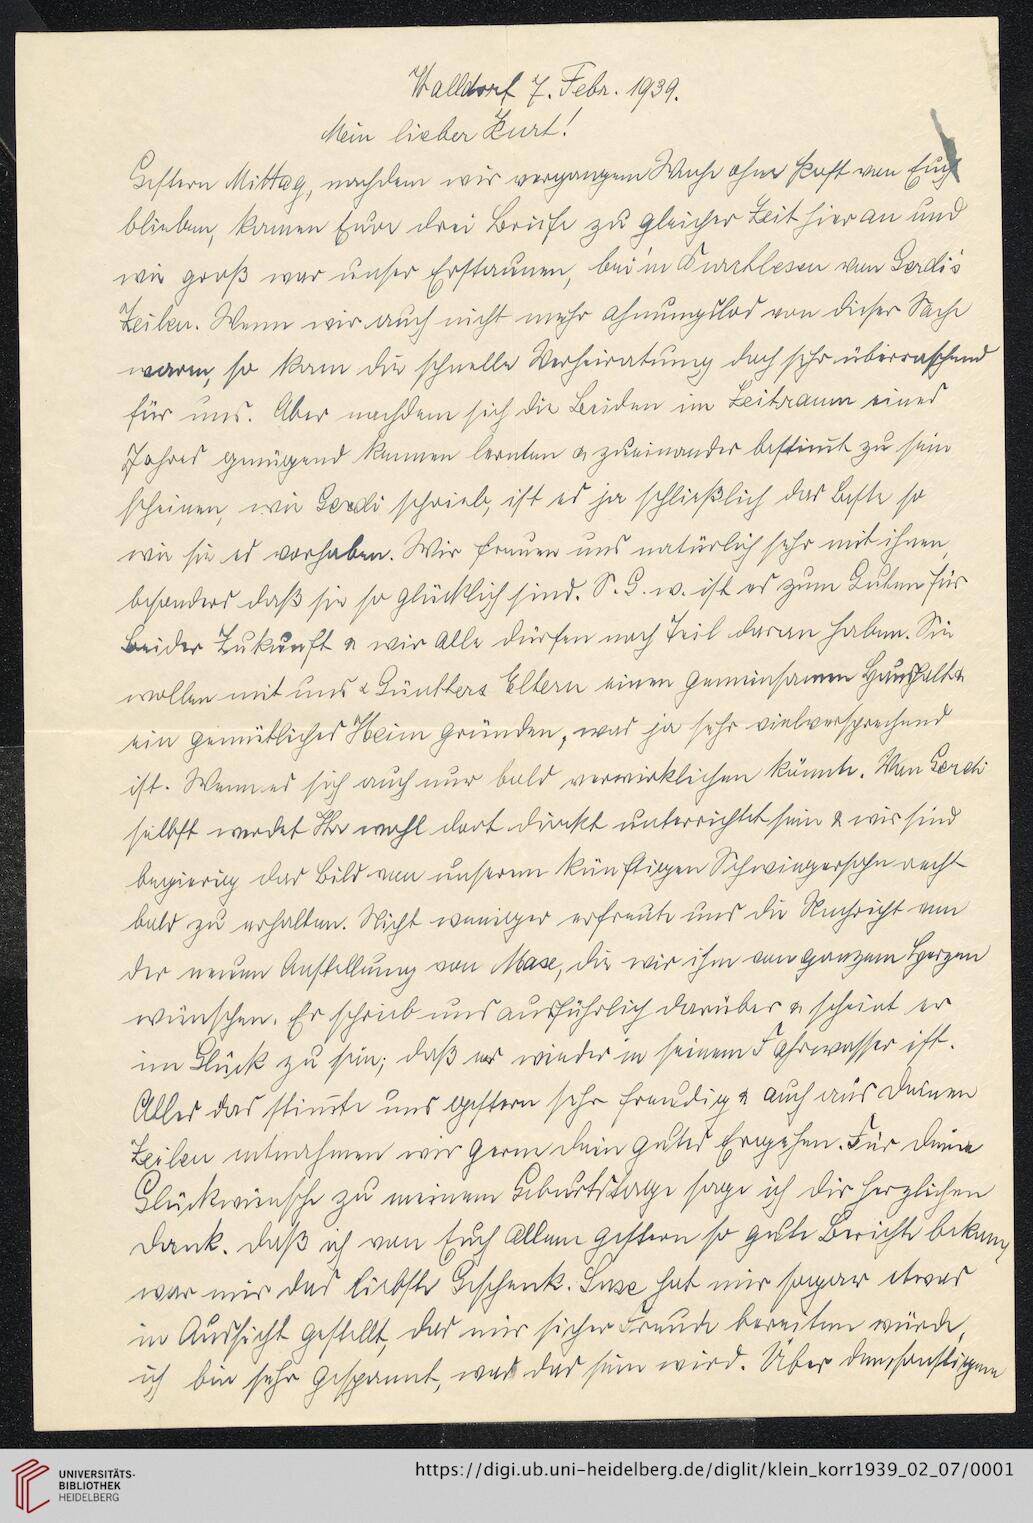 Walldorf 7. Febr. 1939.
Mein lieber Kurt!
Gestern Mittag, nachdem wir vergangene Woche ohne Post von Euch
blieben, kamen Eure drei Briefe zu gleicher Zeit hier an und
wie groß war unser Erstaunen, bei'm Durchlesen von Gerdi's
Zeilen. Wenn wir auch nicht mehr ahnungslos von dieser Sache
waren, so kam die schnelle Verheiratung doch sehr überraschend
für uns. Aber nachdem sich die Beiden im Zeitraum eines
Jahres genügend kennen lernten & zueinander bestimt zu sein
scheinen, wie Gerdi schrieb, ist es ja schließlich das Beste so
wie sie es vorhaben. Wir freuen uns natürlich sehr mit ihnen,
besonders daß sie so glücklich sind. S. G. w. ist es zum Guten für
Beider Zukunft & wir alle dürfen noch Teil daran haben. Sie
wollen mit uns & Günthers Eltern einen gemeinsamen Haushalt &
ein gemütliches Heim gründen, was ja sehr vielversprechend
ist. Wenn es sich auch nur bald verwirklichen könnte. Von Gerdi
selbst werdet Ihr wohl dort direkt unterrichtet sein & wir sind
begierig das Bild von unserem künftigen Schwiegersohn recht
bald zu erhalten. Nicht weniger erfreute uns die Nachricht von
der neuen Anstellung von Max, die wir ihm von ganzem Herzen
wünschen. Er schrieb uns ausführlich darüber & scheint er
im Glück zu sein; daß er wieder in seinem Fahrwasser ist.
Alles das stimte uns gestern sehr freudig & auch aus Deinen
Zeilen entnahmen wir gerne Dein gutes Ergehen. Für Deine
Glückwünsche zu meinem Geburtstage sage ich Dir herzlichen
Dank. Daß ich von Euch Allen gestern so gute Berichte bekam,
war mir das liebste Geschenk. Suse hat mir sogar etwas
in Aussicht gestellt, das mir sicher Freude bereiten würde,
ich bin sehr gespannt, was das sein wird. Über den sonstigen
UNIVERSITÄTS-
BIBLIOTHEK
HEIDELBERG
https://digi.ub.uni-heidelberg.de/diglit/klein_korr1939_02_07/0001